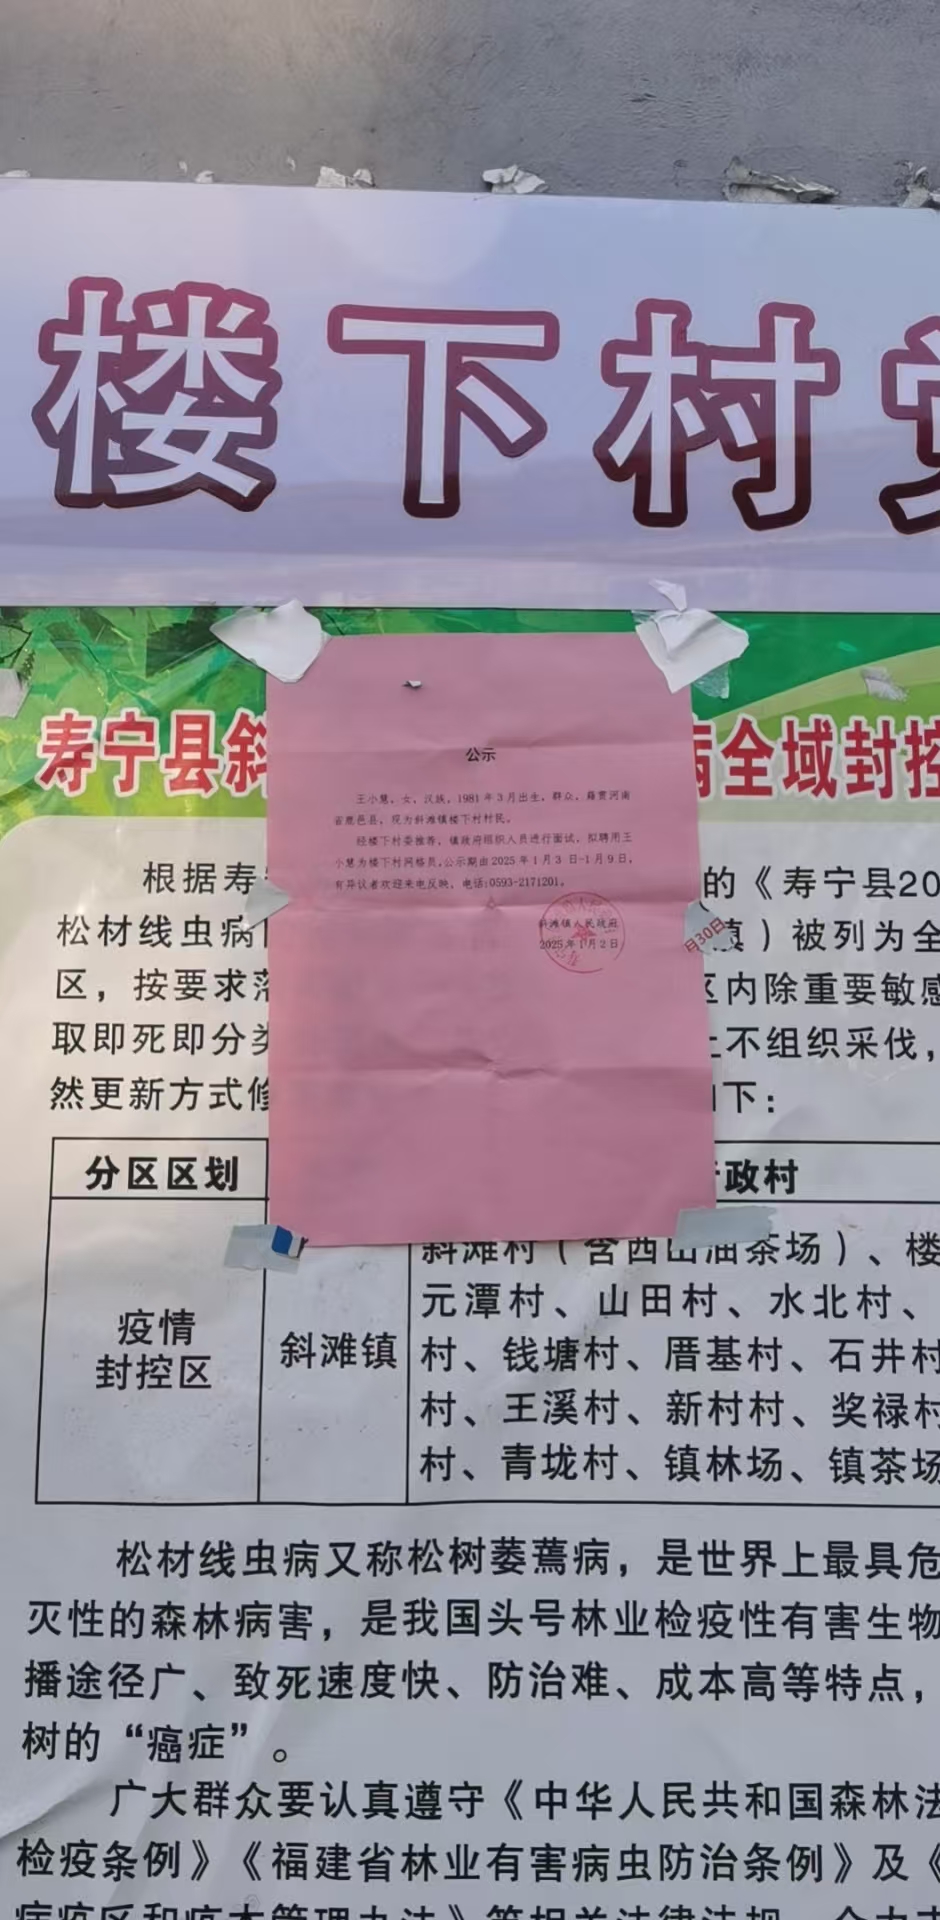 楼下村
寿宁县斜
病全域封控
公示
王小慧，女，汉族，1981年3月出生，群众，籍贯河南
省鹿邑县，现为斜滩镇楼下村村民。
经楼下村委推荐，镇政府组织人员进行面试，拟聘用王
小慧为楼下村网格员，公示期由2025年1月3日-1月9日，
有异议者欢迎来电反映，电话:0593-2171201。
斜滩镇人民政府
2025年1月2日
月30日
根据寿
的《寿宁县20
松材线虫病
镇）被列为全
区，按要求落
区内除重要敏感
取即死即分类
上不组织采伐，
然更新方式修
如下：
分区区划
行政村
疫情
封控区
斜滩镇
斜滩村（含西山油茶场）、楼
元潭村、山田村、水北村、
村、钱塘村、厝基村、石井村
村、王溪村、新村村、奖禄村
村、青垅村、镇林场、镇茶场
松材线虫病又称松树萎蔫病，是世界上最具危
灭性的森林病害，是我国头号林业检疫性有害生物
播途径广、致死速度快、防治难、成本高等特点，
树的“癌症”。
广大群众要认真遵守《中华人民共和国森林法
检疫条例》《福建省林业有害病虫防治条例》及《
病疫区和疫木管理办法》等相关法律法规，全力支